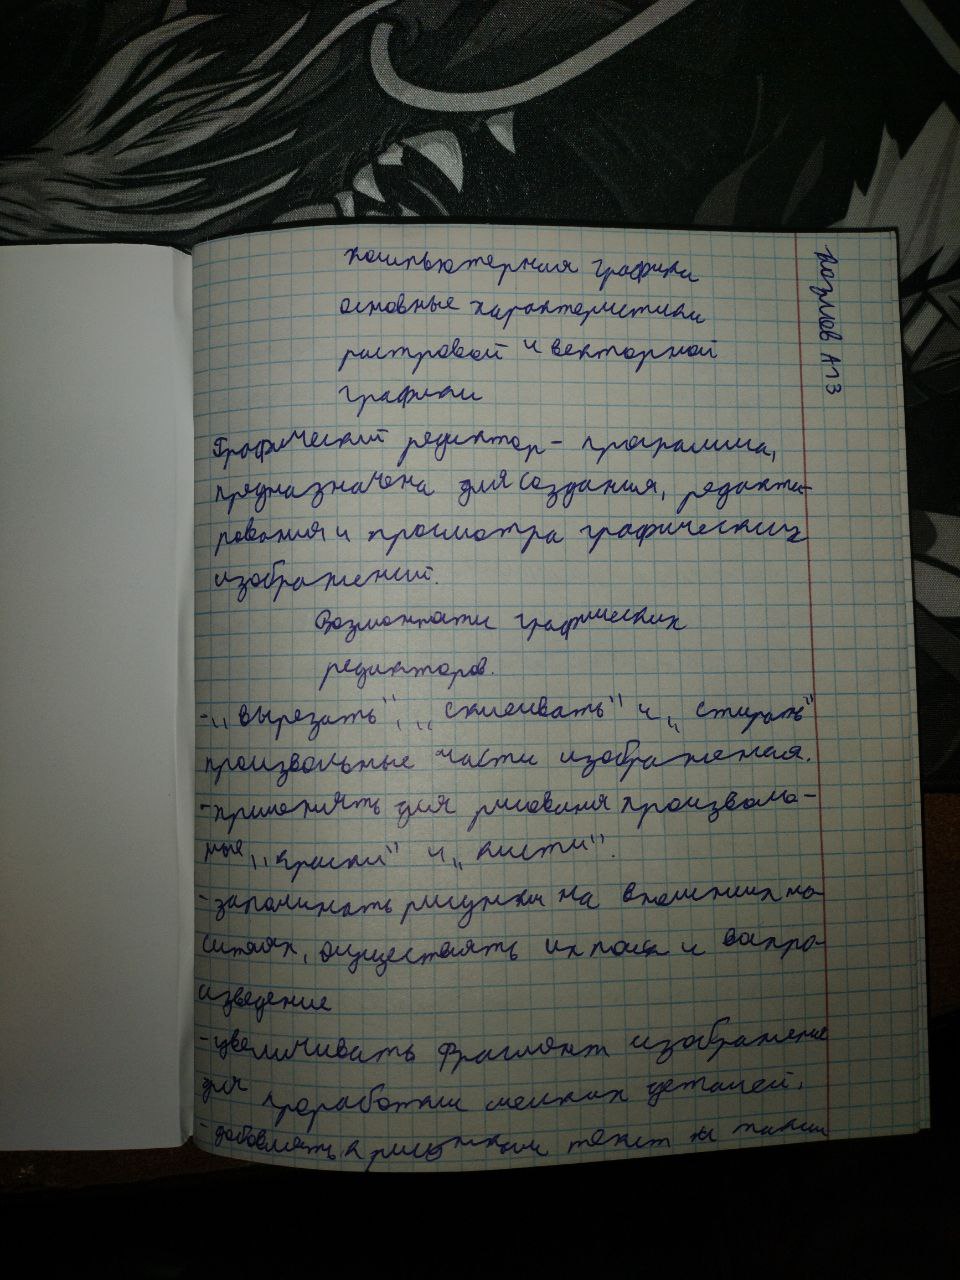 компьютерная графика
основные характеристики
растровой и векторной
графики
Графический редактор - программа,
предназначена для создания, редакти-
рования и просмотра графических
изображений.
Возможности графических
редакторов.
- „вырезать", „склеивать" и „стирать"
произвольные части изображения.
- применять для рисования произволь-
ные „краски" и „кисти".
- запоминать рисунки на внешних но-
сителях, осуществлять их поиск и воспро-
изведение
- увеличивать фрагмент изображения
для проработки мелких деталей.
- добавлять к рисункам текст и таким
Козлов А13